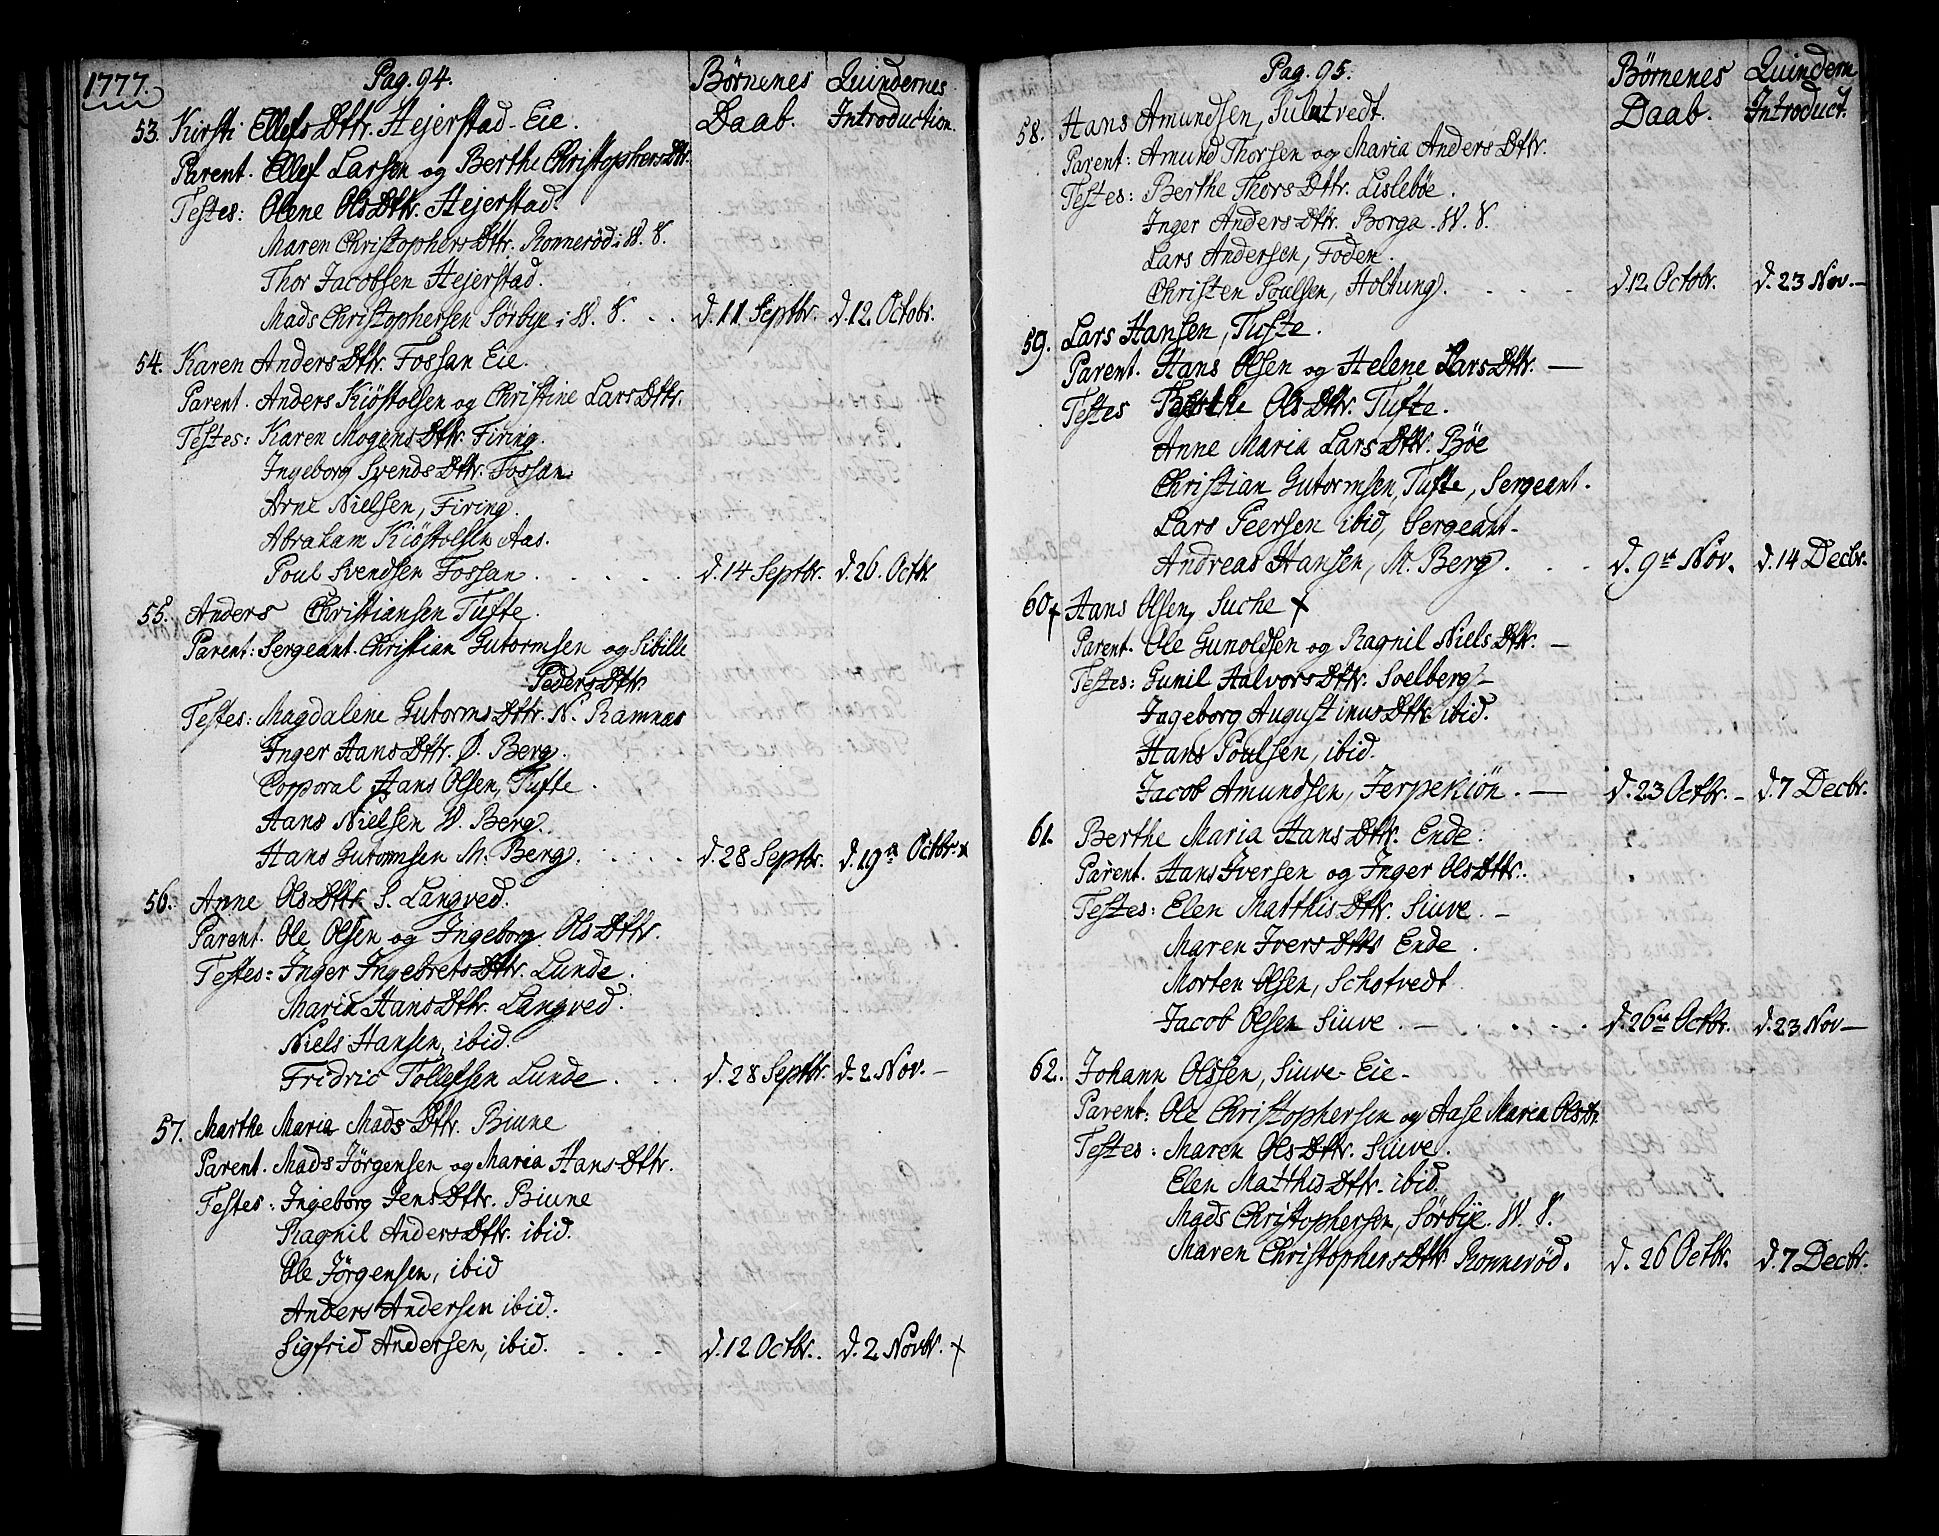 1777. Pag. 94. Börnenes Daab. Quindernes Introduction.
53. Kirsti Ellefs Dttr. Hejerstad-Eie.
Parent. Ellef Larsen og Berthe Christophers Dtr.
Testes: Olene Ols Dttr. Hejerstad.
Maren Christophers Dttr. Ronneröd i W. S.
Thor Jacobsen Hejerstad.
Mads Christophersen Sörbye i W. S. . . d. 11 Septbr. d. 12 Octobr.
54. Karen Anders Dttr. Fossan Eie.
Parent. Anders Kiöstolsen og Christine Lars Dttr.
Testes: Karen Mogens Dttr. Firing.
Ingeborg Svends Dttr. Fossan.
Arne Nielsen, Firing.
Abraham Kiöstolsen Aas.
Poul Svendsen Fossan . . . . . d. 14 Septbr. d. 26. Octbr.
55. Anders Christiansen Tufte.
Parent: Sergeant Christian Gutormsen og Sibille
Peders Dttr.
Testes: Magdalene Gutorms Dttr. N. Ramnas
Inger Hans Dttr. Ö. Berg.
Corporal Hans Olsen, Tufte.
Hans Nielsen W. Berg.
Hans Gutormsen M. Berg. . . . . d. 28 Septbr. d. 19 Octbr. x
56. Anne Ols Dttr. S. Langved.
Parent. Ole Olsen og Ingeborg Ols Dttr.
Testes: Inger Ingebrets Dttr. Lunde.
Maria Hans Dttr. Langved.
Niels Hansen, ibid.
Fridric Tollefsen Lunde . . . d. 28 Septbr. d. 2 Nov. –
57. Marthe Maria Mads Dttr. Biune
Parent. Mads Jörgensen og Maria Hans Dttr.
Testes: Ingeborg Jens Dttr. Biune
Ragnil Anders Dttr. ibid.
Ole Jörgensen, ibid
Anders Andersen ibid.
Sigfrid Andersen, ibid. . . . d. 12 Octbr. d. 2 Novbr. x
Pag. 95. Börnenes Daab. Quindern Introduct.
58. Hans Amundsen, Tulutvedt.
Parent: Amund Thorsen og Maria Anders Dttr.
Testes: Berthe Thors Dttr. Lisleböe.
Inger Anders Dttr. Borga. W. S.
Lars Andersen, Foden.
Christen Poulsen, Holtung. . . . d. 12 Octobr. d. 23 Nov. –
59. Lars Hansen, Tufte.
Parent. Hans Olsen og Helene Lars Dttr. –
Testes Berthe Ols Dttr. Tufte.
Anne Maria Lars Dttr. Böe
Christian Gutormsen, Tufte, Sergeant.
Lars Peersen ibid, Sergeant–
Andreas Hansen, M. Berg. . . d. 9 Nov. d. 14 Decbr.
60. x Hans Olsen, Suche x
Parent. Ole Gunoldsen og Ragnil Niels Dttr. –
Testes: Gunil Halvors Dttr. Solberg –
Ingeborg Augustinus Dttr. ibid.
Hans Poulsen, ibid.
Jacob Amundsen, Jerpekiön. – d. 23 Octbr. – d. 7 Decbr.
61. Berthe Maria Hans Dttr. Ende.
Parent. Hans Iversen og Inger Ols Dttr.
Testes: Elen Matthis Dttr. Siuve. –
Maren Ivers Dttr Ende.
Morten Olsen, Schotvedt
Jacob Olsen Siuve . – . . . . d. 26 Octbr. d. 23 Nov –
62. Johann Olssen, Siuve-Eie–
Parent. Ole Christophersen og Aase Maria Olsdtr.
Testes: Maren Ols Dttr. Siuve.
Elen Matthis Dttr. ibid.
Mads Christophersen, Sörbye. W. S.
Maren Christophers Dttr Ronneröd. d. 26 Octbr. d. 7 Decbr.